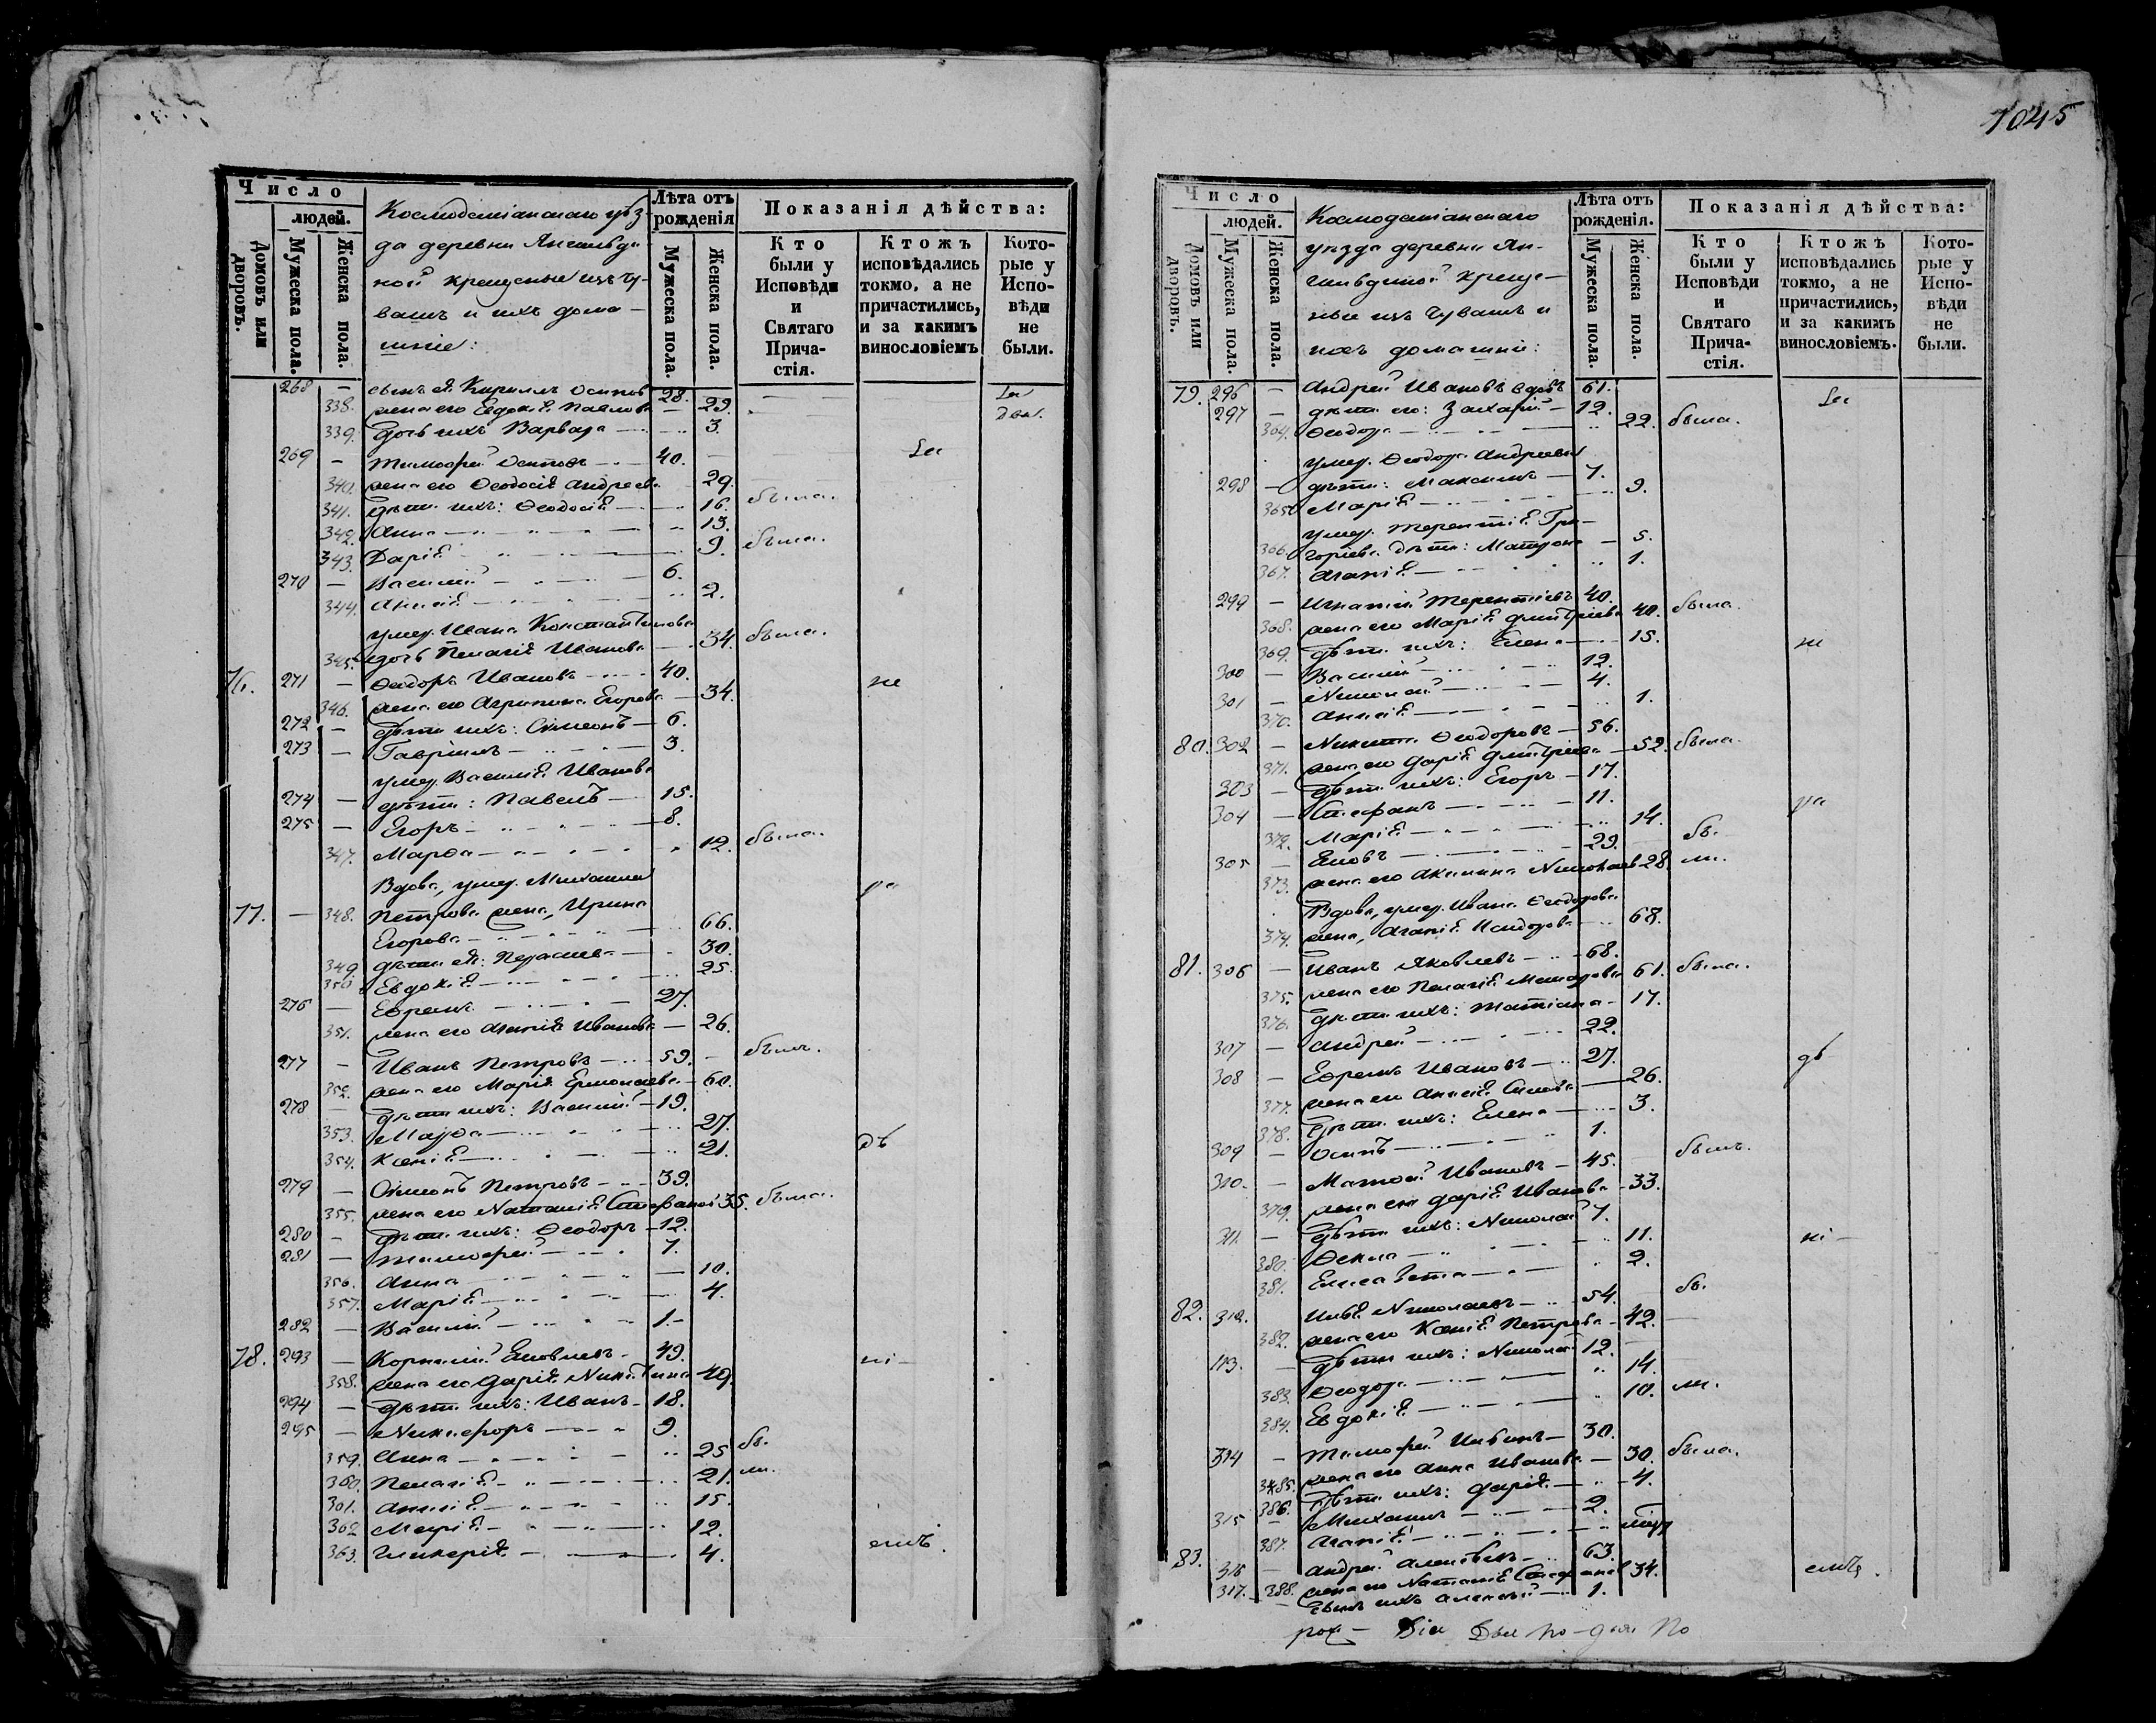 1045
Число
людей.
Домовъ или дворовъ.
Мужеска пола.
Женска пола.
Козмодемьянскаго уѣз-
да деревни Янгильди-
ной крещеные изъ чу-
вашъ и ихъ дома-
шніе:
Лѣта отъ рожденія
Мужеска пола.
Женска пола.
Показанія дѣйства:
Кто были у Исповѣди и Святаго Причастія.
Ктожъ исповѣдались токмо, а не причастились, и за какимъ винословіемъ
Которые у Исповѣди не были.
268 — сынъ ея Кириллъ Осиповъ 28.
338. жена его Евдокія Павлова — 29.
339. дочь ихъ Варвара — 3.
269 — Тимофей Осиповъ — 40.
340. жена его Ѳеодосія Андреева 29.
341. дѣти ихъ: Ѳеодосія — 16. была.
342. Анна — 13.
343. Дарія — 9. была.
270 — Василій — 6.
344. Анисія — 2.
умер. Ивана Константинова
345. дочь Пелагія Иванова — 34. была.
76. 271 — Ѳеодоръ Ивановъ — 40. не
346. жена его Агрипина Егорова — 34.
272 — дѣти ихъ: Симеонъ — 6.
273 — Гавріилъ — 3.
умер. Василія Иванова
274 — дѣти: Павелъ — 15.
275 — Егоръ — 8.
347. Марѳа — 12. была.
Вдова, умер. Михаила
77. — 348. Петрова жена, Ирина
Егорова — 66.
349. дѣти ея: — 30.
350 Евдокія — 25.
276 — Ефремъ — 27.
351. жена его Агапія Иванова — 26.
277 — Иванъ Петровъ — 59. — былъ.
352. жена его Марія Ермолаева — 60.
278 — дѣти ихъ: Василій — 19.
353. Марѳа — 27.
354. Ксенія — 21.
279 — Симеонъ Петровъ — 39.
355. жена его Наталія Стефанов 35. была.
280 — дѣти ихъ: Ѳеодоръ — 12.
281 — Тимофей — 7.
356. Анна — 10.
357. Марія — 4.
282 — Василій — 1. —
78. 293 — Корнилій Яковлевъ — 49.
358. жена его Дарія Никитина 49.
294 — дѣти ихъ: Иванъ — 18.
295 — Никифоръ — 9.
359. Анна — 25 бы.
360. Пелагія — 21. ли.
361. Анисія — 15.
362 Марія — 12.
363. Гликерія — 4.
Число
людей.
Домовъ или дворовъ.
Мужеска пола.
Женска пола.
Козмодемьянскаго
уѣзда деревни Ян-
гильдиной креще-
ные изъ чувашъ и
ихъ домашніи:
Лѣта отъ рожденія.
Мужеска пола.
Женска пола.
Показанія дѣйства:
Кто были у Исповѣди и Святаго Причастія.
Ктожъ исповѣдались токмо, а не причастились, и за какимъ винословіемъ.
Которые у Исповѣди не были.
79. 296 — Андрей Ивановъ вдовъ 61.
297 — дѣти его: Захарій — 12.
364. Ѳеодора — 22. была.
умер. Ѳеодора Андреева
298 — дѣти: Максимъ — 7.
365 Марія — 9.
умер. Терентія Гри-
366. горьева дѣти: Матрона — 5.
367. Агапія — 1.
299 — Игнатій Терентіевъ 40.
368. жена его Марія Дмитріева 40. была.
369. дѣти ихъ: Елена — 15. ни
300 — Василій — 12.
301 — Николай — 4.
370. Анисія — 1.
80. 302 — Никита Ѳеодоровъ — 56.
371. жена его Дарія Дмитріева — 52. была.
303 — дѣти ихъ: Егоръ — 17.
304 — Стефанъ — 11.
372. Марія — 14.
305 — Яковъ — 29. бы.
373. жена его Акилина Николаев 28. ли.
Вдова, умер. Ивана Ѳеодорова
374. жена, Агапія — 68.
81. 306 — Иванъ Яковлевъ — 68.
375. жена его Пелагія — 61. была.
376. дѣти ихъ: Татіана — 17.
307 — Андрей — 22.
308 — Ефремъ Ивановъ — 27.
377. жена его Анисія — 26.
378. дѣти ихъ: Елена — 3.
309 — Осипъ — 1.
310. — Матѳей Ивановъ — 45. былъ.
379. жена его Дарія Иванова — 33.
311. — дѣти ихъ: Николай 7.
380. Ѳекла — 11.
381. Елисавета — 2.
82. 312. Илья Николаевъ — 54. бы.
382. жена его Ксенія Петрова — 42.
113. — дѣти ихъ: Николай 12.
383. Ѳеодора — 14.
384. Евдокія — 10. ли.
314 — Тимофей Ильинъ — 30.
385. жена его Анна Иванова — 30. была.
386. дѣти ихъ: Дарія — 4.
315 — Михаилъ — 2.
387. Агапія —
83. 316 — Андрей Алексѣевъ — 63.
388. жена его Наталія Стефанов 34.
317. — сынъ ихъ Алексѣй — 1.